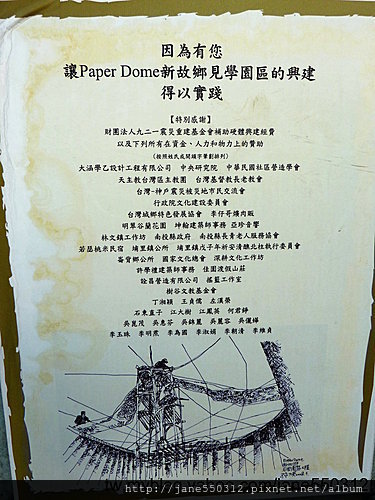 因為有您
讓Paper Dome新故鄉見學園區的興建
得以實踐
【特別感謝】
財團法人九二一震災重建基金會補助硬體興建經費
以及下列所有在資金、人力和物力上的贊助
(按照姓氏或開頭字筆劃排列)
大涵學乙設計工程有限公司 中央研究院 中華民國社區營造學會
天主教台灣區主教團 台灣基督長老教會
台灣-神戶震災被災地市民交流會
行政院文化建設委員會
台灣城鄉特色發展協會 李仔哥爌肉飯
明單谷蘭花園 坤翰建築師事務 亞珍音響
林文鎮工作坊 南投縣政府 南投縣長青老人服務協會
若瑟桃米民宿 埔里鎮公所 埔里鎮戊子年祈安清醮北壇執行委員會
國家文化總會 深耕文化工作坊
許學禮建築師事務 佳園渡假山莊
詮昌營造有限公司 搖籃工作室
樹谷文教基金會
丁淑穎 王貞儒 左漢榮
石東直子 江大樹 江鳳英 何君錚
吳崑茂 吳惠芬 吳錦麗 吳麗容
李玉珠 李明震 李為國 李淑娟 李朝清 李維貞
http://jane550312.pixnet.net/album